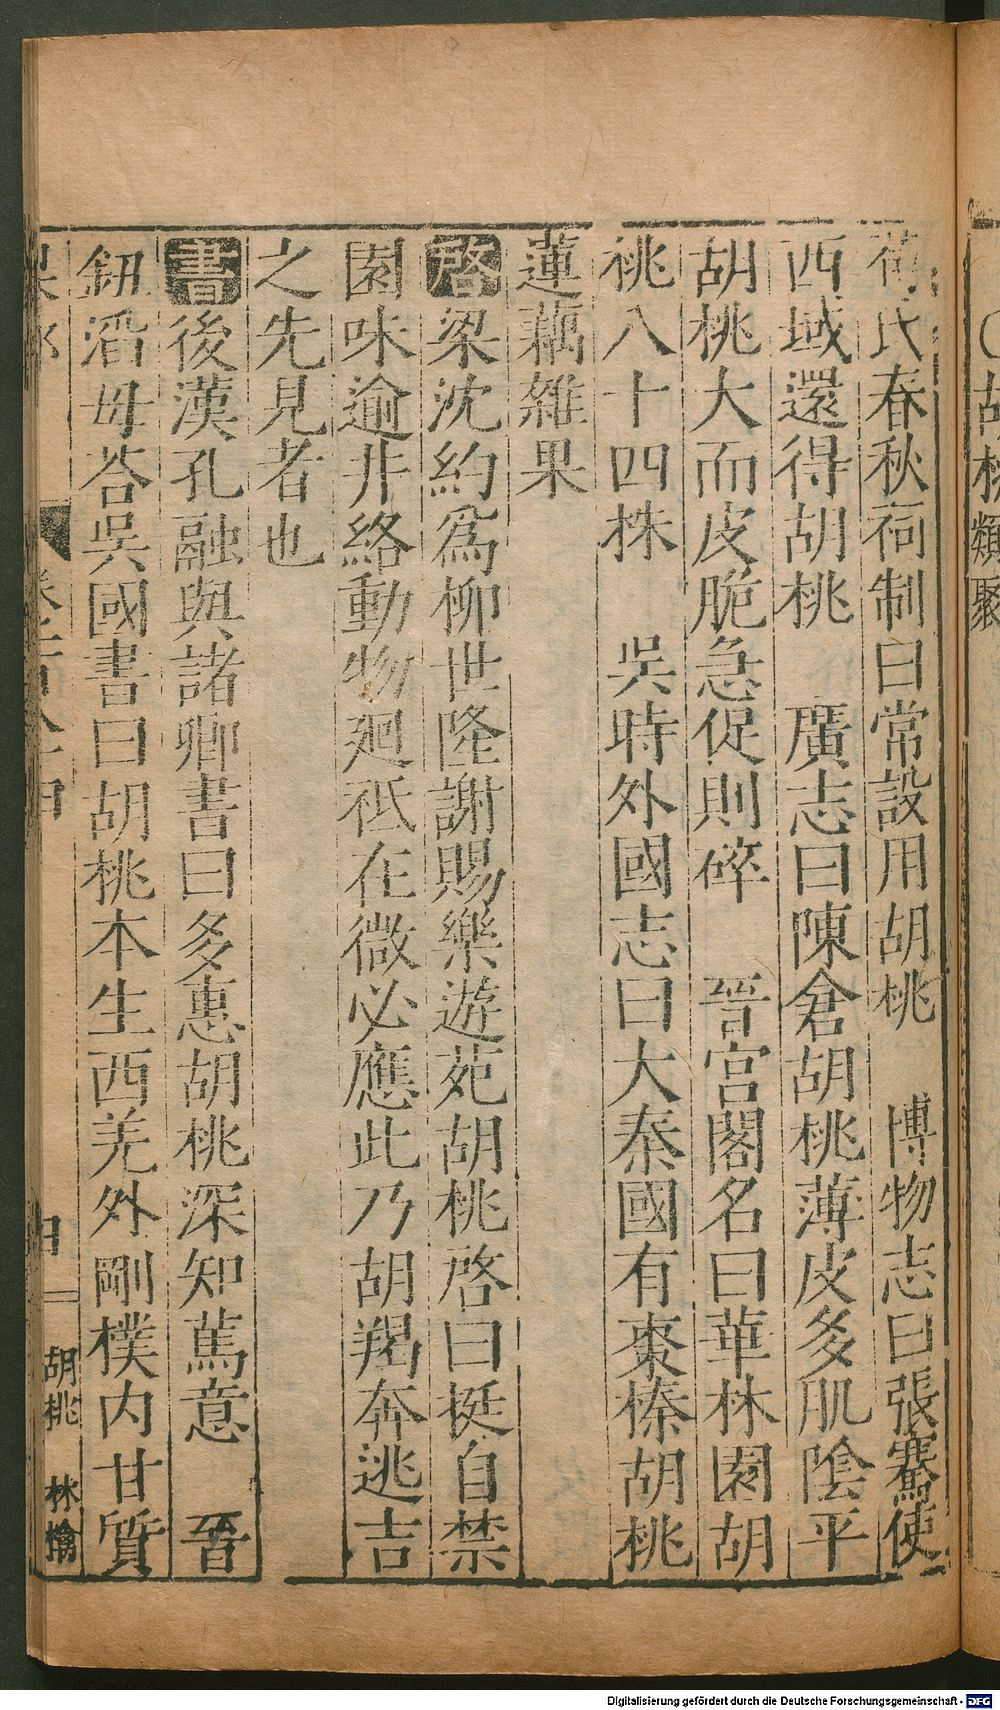 胡桃類聚
荀氏春秋祠制曰常設用胡桃　博物志曰張騫使
西域還得胡桃　廣志曰陳倉胡桃薄皮多肌陰平
胡桃大而皮脆急促則碎　晉宮閣名曰華林園胡
桃八十四株　吳時外國志曰大秦國有棗榛胡桃
蓮藕雜果
啓梁沈約爲柳世隆謝賜樂遊苑胡桃啓曰挺自禁
園味逾井絡動物廻祇在微必應此乃胡羯奔逃吉
之先見者也
書後漢孔融與諸卿書曰多惠胡桃深知篤意　晉
鈕滔母荅吳國書曰胡桃本生西羌外剛樸內甘質
胡桃　林檎
Digitalisierung gefördert durch die Deutsche Forschungsgemeinschaft - DFG